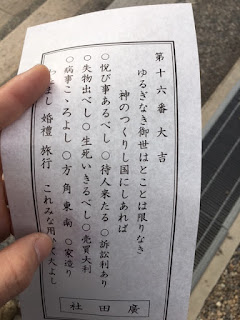 第十六番大吉
ゆるぎなき御世はとことは限りなき
神のつくりし国にしあれば
○悦び事あるべし○待人来たる○訴訟利あり
○失物出べし○生死いきるべし○売買大利
○病事こゝろよし○方角東南○家造り
よし 婚禮 旅行 これみな用ひて大よし
廣田社